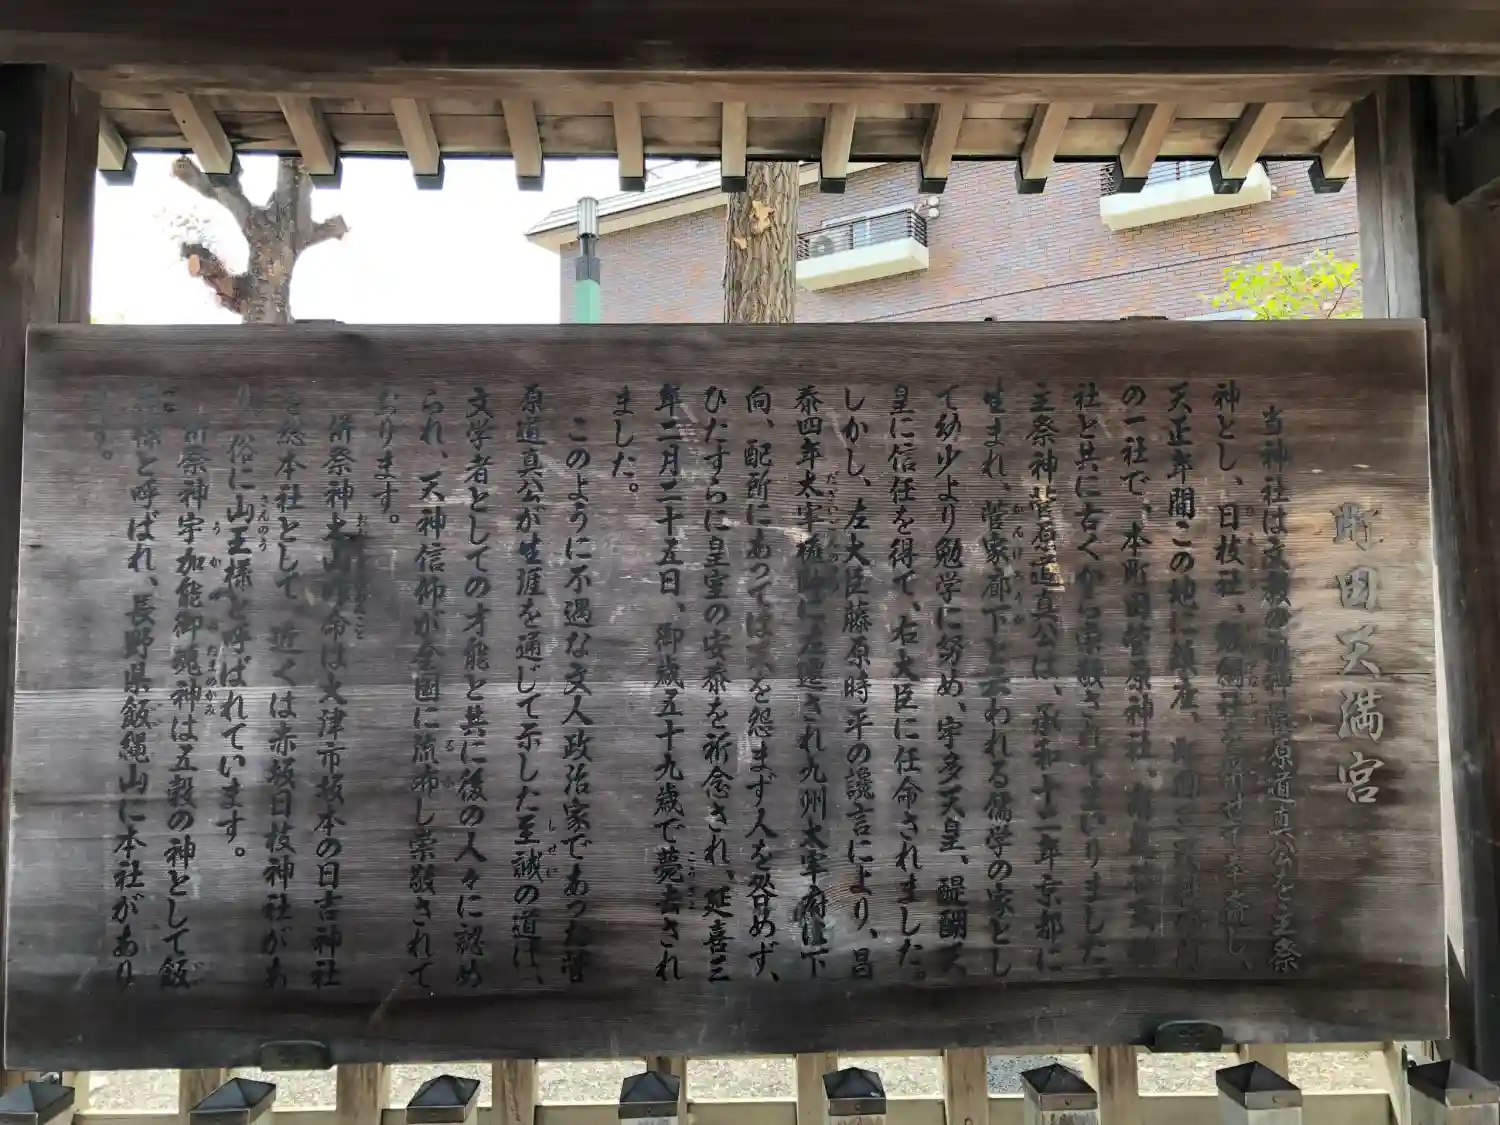 町田天満宮
当神社は文教の祖神菅原道真公を主祭
神とし、日枝社、飯綱社を併せて奉斎し、
天正年間この地に鎮座、町田
の一社で、本町田菅原神社、南
社と共に古くから崇敬されてまいりました。
主祭神菅原道真公は、承和十二年京都に
生まれ、菅家廊下と云われる儒学の家とし
て幼少より勉学に努め、宇多天皇、醍醐天
皇に信任を得て、右大臣に任命されました。
しかし、左大臣藤原時平の讒言により、昌
泰四年太宰権帥に左遷され九州太宰府に下
向、配所にあっては天を怨まず人を咎めず、
ひたすらに皇室の安泰を祈念され、延喜三
年二月二十五日、御歳五十九歳で薨去され
ました。
このように不遇な文人政治家であった菅
原道真公が生涯を通じて示した至誠の道は、
文学者としての才能と共に後の人々に認め
られ、天神信仰が全国に流布し崇敬されて
おります。
併祭神 大山咋命は大津市坂本の日吉神社
を総本社として、近くは赤坂日枝神社があ
り、俗に山王様と呼ばれています。
併祭神宇加能御魂神は五穀の神として飯
縄様と呼ばれ、長野県飯縄山に本社があり
ます。